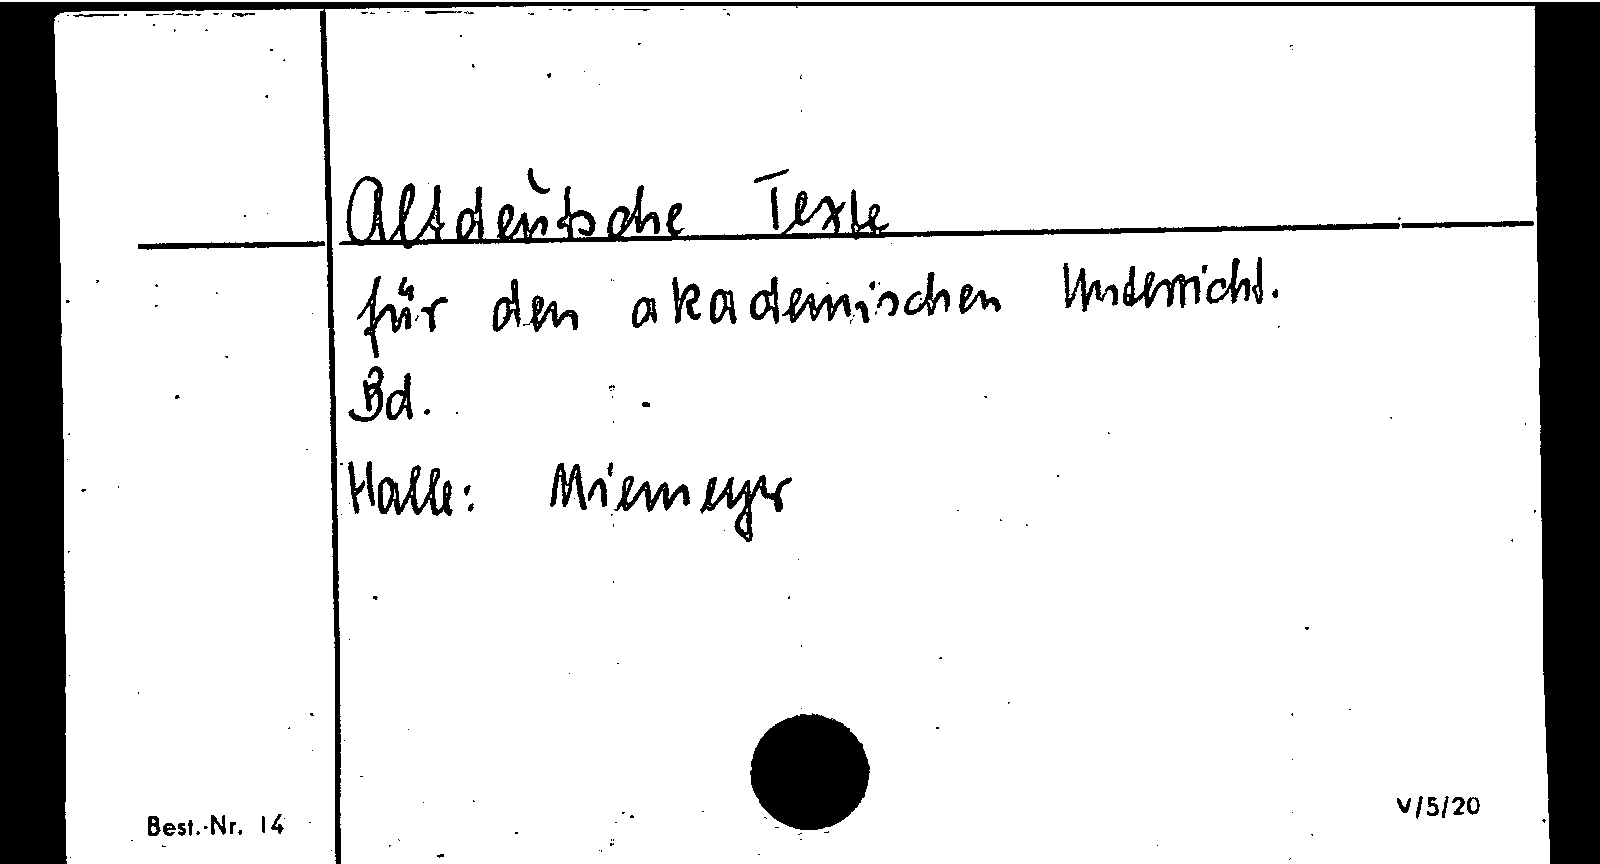 Altdeutsche Texte
für den akademischen Unterricht.
Bd.
Halle: Niemeyer
Best.-Nr. 14
V/5/20